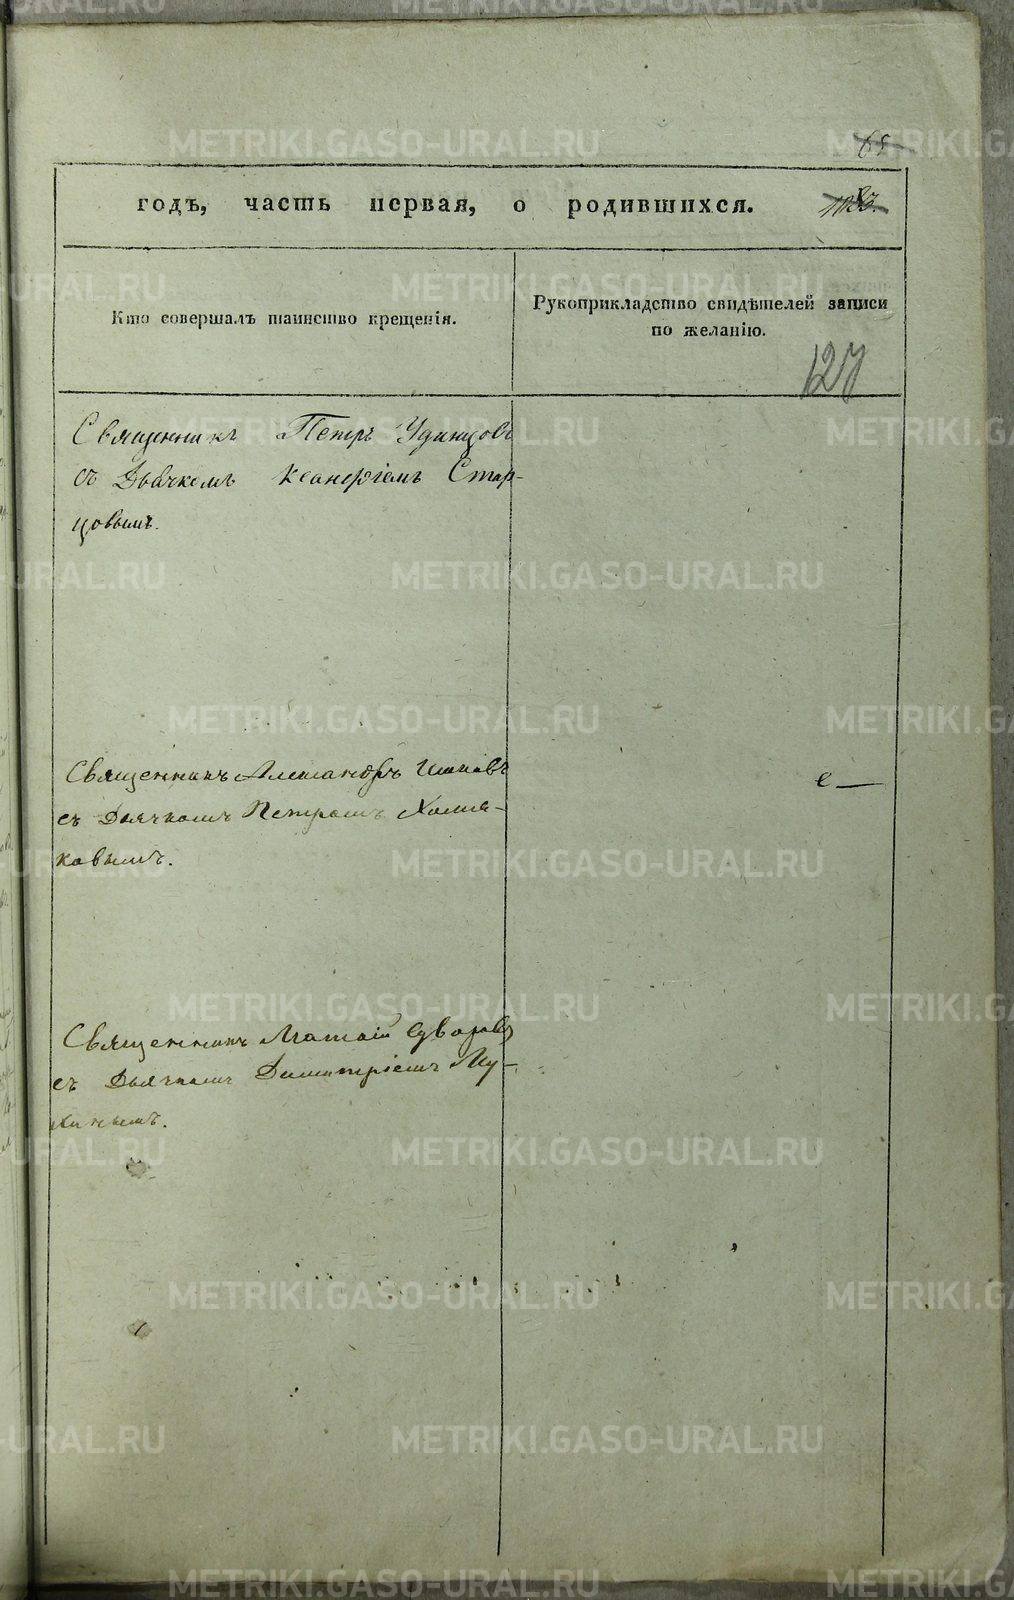 65
годъ, часть первая, о родившихся.
Кто совершалъ таинство крещенія.
Рукоприкладство свидѣтелей записи
по желанію.
127
Священникъ Петръ Удинцовъ
съ Дьячкомъ Стар
цовымъ.
Священникъ Александръ
съ Дьячкомъ Петромъ Хомя-
ковымъ.
Священникъ Матѳій Суворовъ
съ Дьячкомъ Димитріемъ Му-
хинымъ.
METRIKI.GASO-URAL.RU